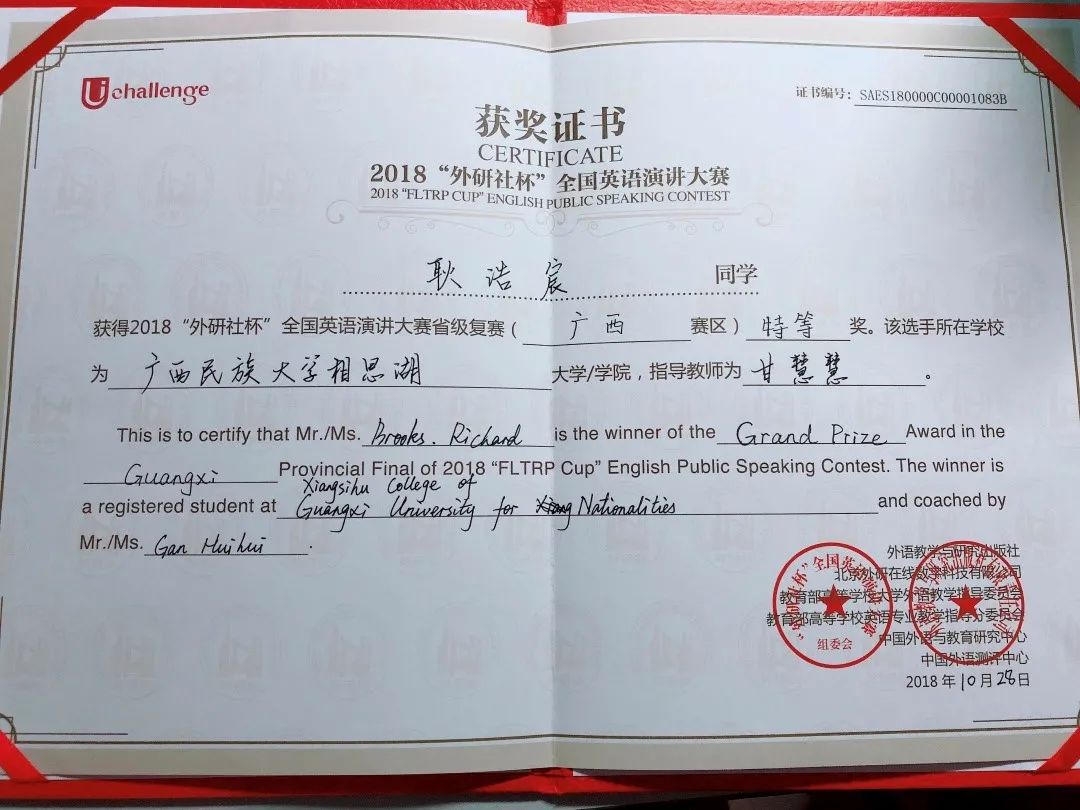 Uchallenge
证书编号：SAES180000C00001083B
获奖证书
CERTIFICATE
2018“外研社杯”全国英语演讲大赛
2018 “FLTRP CUP” ENGLISH PUBLIC SPEAKING CONTEST
耿浩宸 同学
获得2018“外研社杯”全国英语演讲大赛省级复赛（广西赛区）特等奖。该选手所在学校
为广西民族大学相思湖大学/学院，指导教师为甘慧慧。
This is to certify that Mr./Ms. Brooks. Richard is the winner of the Grand Prize Award in the
Guangxi Provincial Final of 2018 “FLTRP Cup” English Public Speaking Contest. The winner is
Xiangsihu College of
a registered student at Guangxi University for Nationalities and coached by
Mr./Ms. Gan Huihui.
外语教学与研究出版社
北京外研在线数字科技有限公司
教育部高等学校大学外语教学指导委员会
教育部高等学校英语专业教学指导分委员会
中国外语与教育研究中心
中国外语测评中心
2018年10月28日
“外研社杯”全国英语演讲大赛
组委会